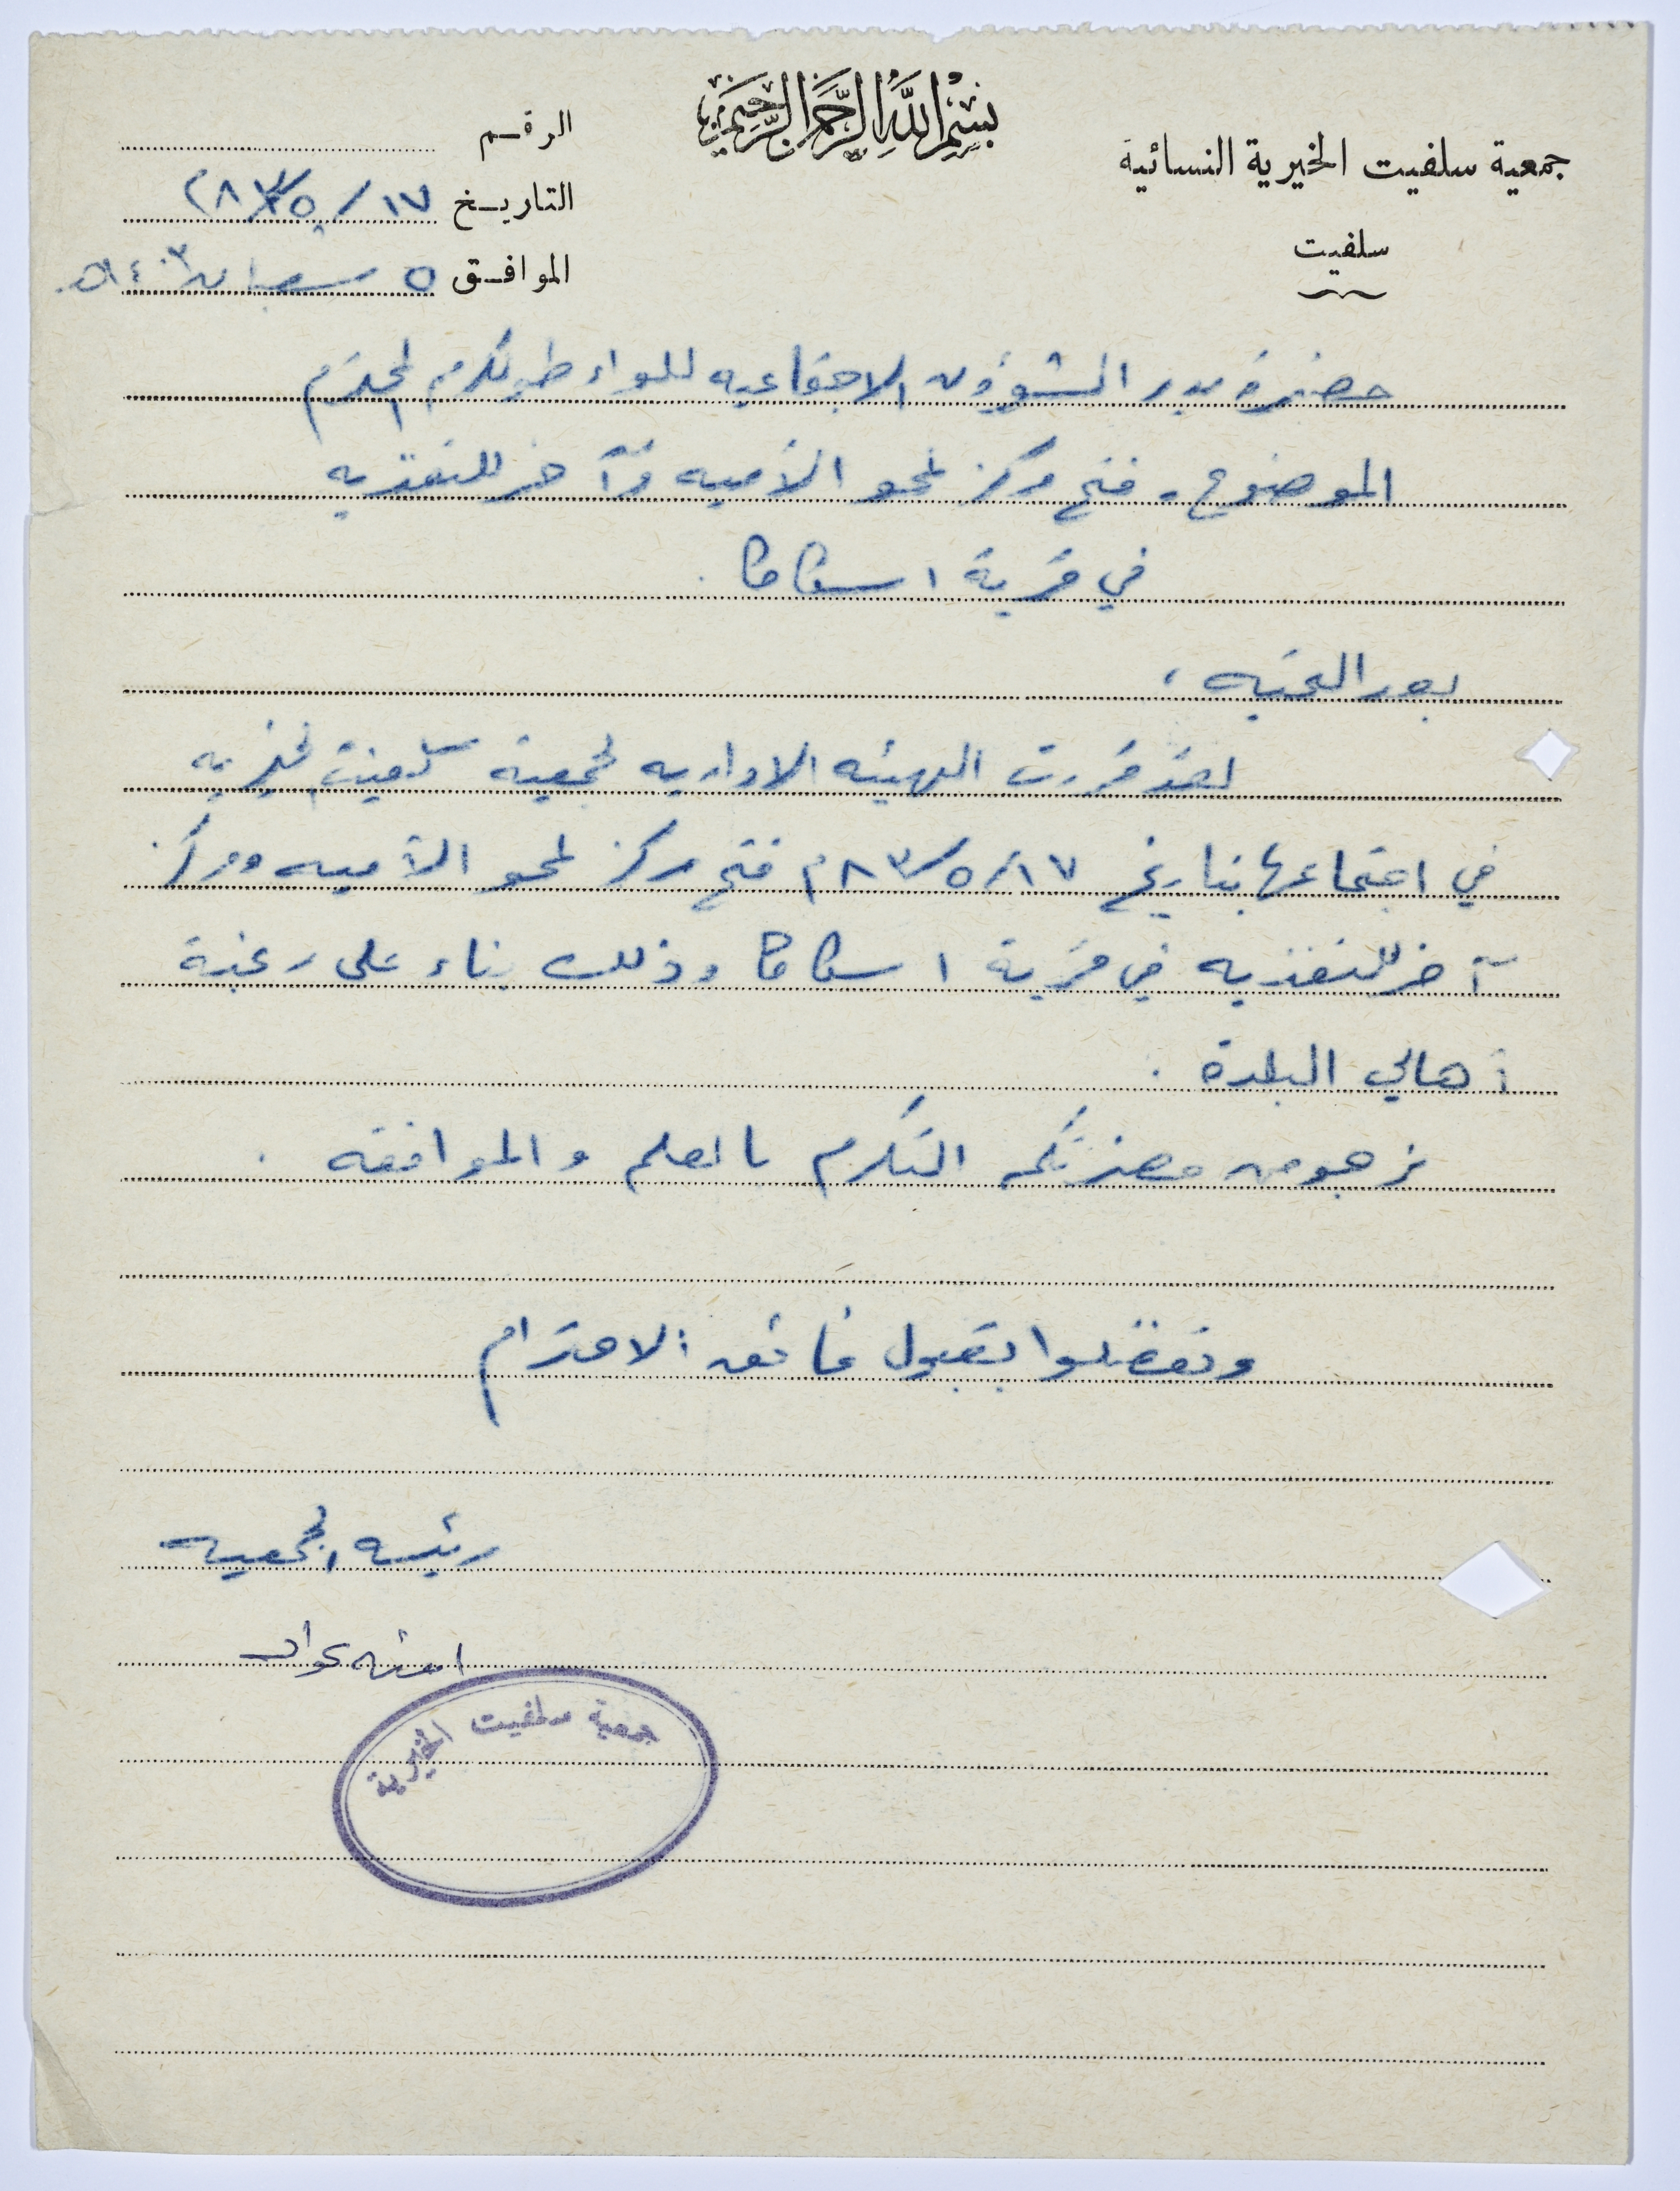 بسم الله الرحمن الرحيم
جمعية سلفيت الخيرية النسائية
سلفيت
الرقم
التاريخ ١٧/٥/٨٣م
الموافق ٥ شعبان ١٤٠٣هـ
حضرة مدير الشؤون الاجتماعيه للواء طولكرم المحترم
الموضوع - فتح مركز لمحو الأميه وآخر للتغذيه
في قرية اسكاكا .
بعد التحيه ،
لقد قررت الهيئه الاداريه لجمعية سلفيت الخيريه
في اجتماعها بتاريخ ١٧/٥/٨٣م فتح مركز لمحو الأميه ومركز
آخر للتغذيه في قرية اسكاكا وذلك بناء على رغبة
أهالي البلدة .
نرجو من حضرتكم التكرم بالعلم والموافقه .
وتفضلوا بقبول فائق الاحترام
رئيسه الجمعيه
امنه عواد
جمعية سلفيت الخيرية